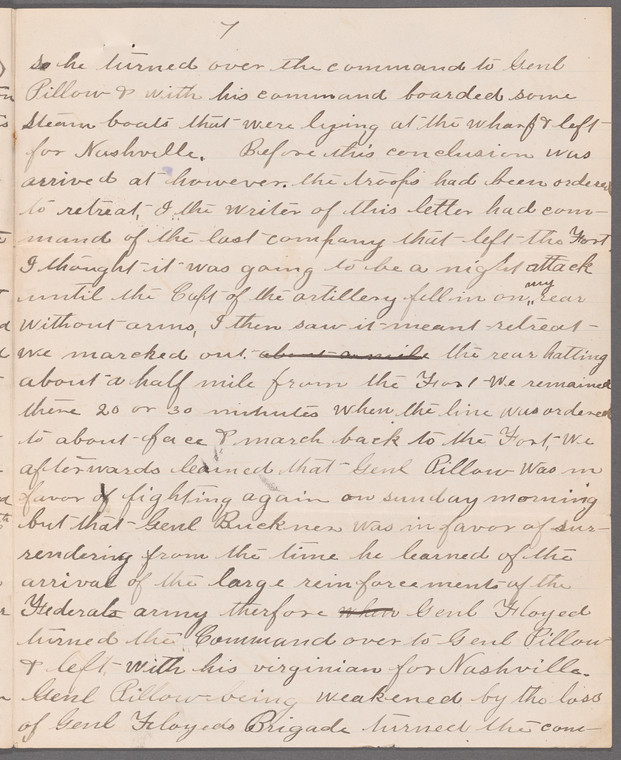 7
so he turned over the command to Genl
Pillow & with his command boarded some
steam boats that were lying at the wharf & left
for Nashville. Before this conclusion was
arrived at however. the troops had been ordered
to retreat, I the writer of this letter had com-
mand of the last company that left the Fort.
I thought it was going to be a night attack
until the Capt of the artillery fell in on my rear
without arms, I then saw it meant retreat
we marched out about a mile the rear halting
about a half mile from the Fort We remained
there 20 or 30 minutes when the line was ordered
to about face & march back to the Fort, We
afterwards learned that Genl Pillow was in
favor of fighting again on sunday morning
but that Genl Buckner was in favor of sur-
rendering from the time he learned of the
arrival of the large reinforcements of the
Federals army therfore when Genl Floyed
turned the Command over to Genl Pillow
& left with his virginian for Nashville.
Genl Pillow being weakened by the loss
of Genl Floyeds Brigade turned the com-